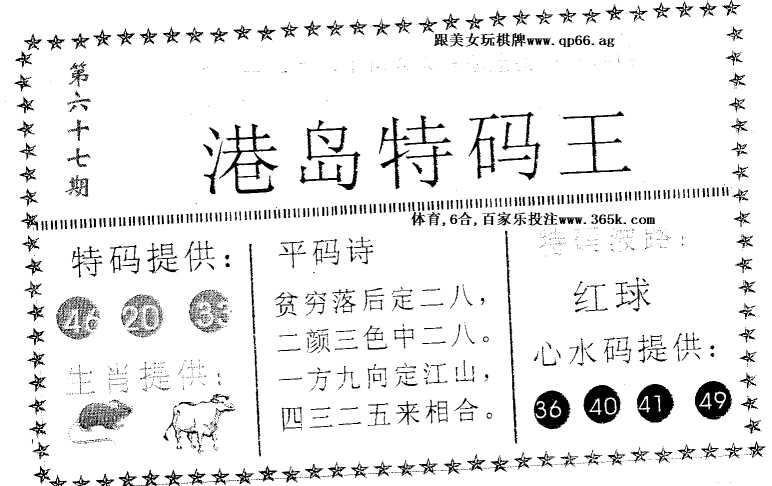 跟美女玩棋牌www.qp66.ag
第六十七期
港岛特码王
体育,6合,百家乐投注www.365k.com
特码提供：
46 20 33
生肖提供：
平码诗
贫穷落后定二八，
二颜三色中二八。
一方九向定江山，
四三二五来相合。
特码波路：
红球
心水码提供：
36 40 41 49